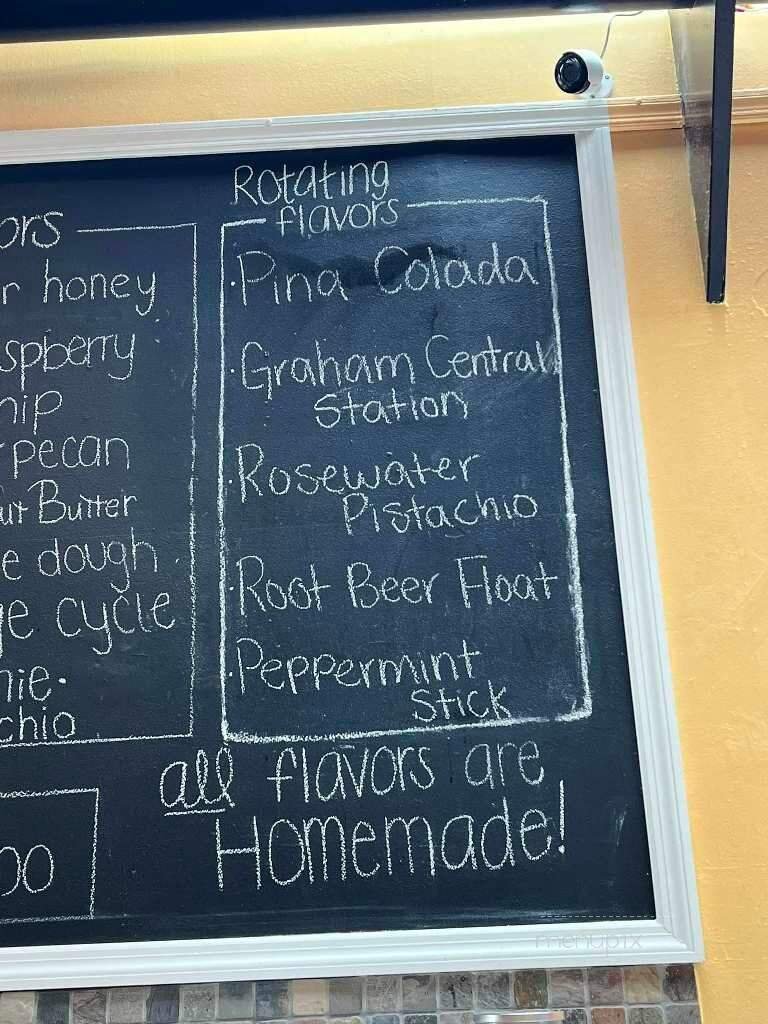 ors
r honey
spberry
hip
pecan
ut Butter
e dough
ge cycle
nie
chio
00
Rotating
flavors
· Pina Colada
· Graham Central
Station
· Rosewater
Pistachio
· Root Beer Float
· Peppermint
Stick
all flavors are
Homemade!
menupix